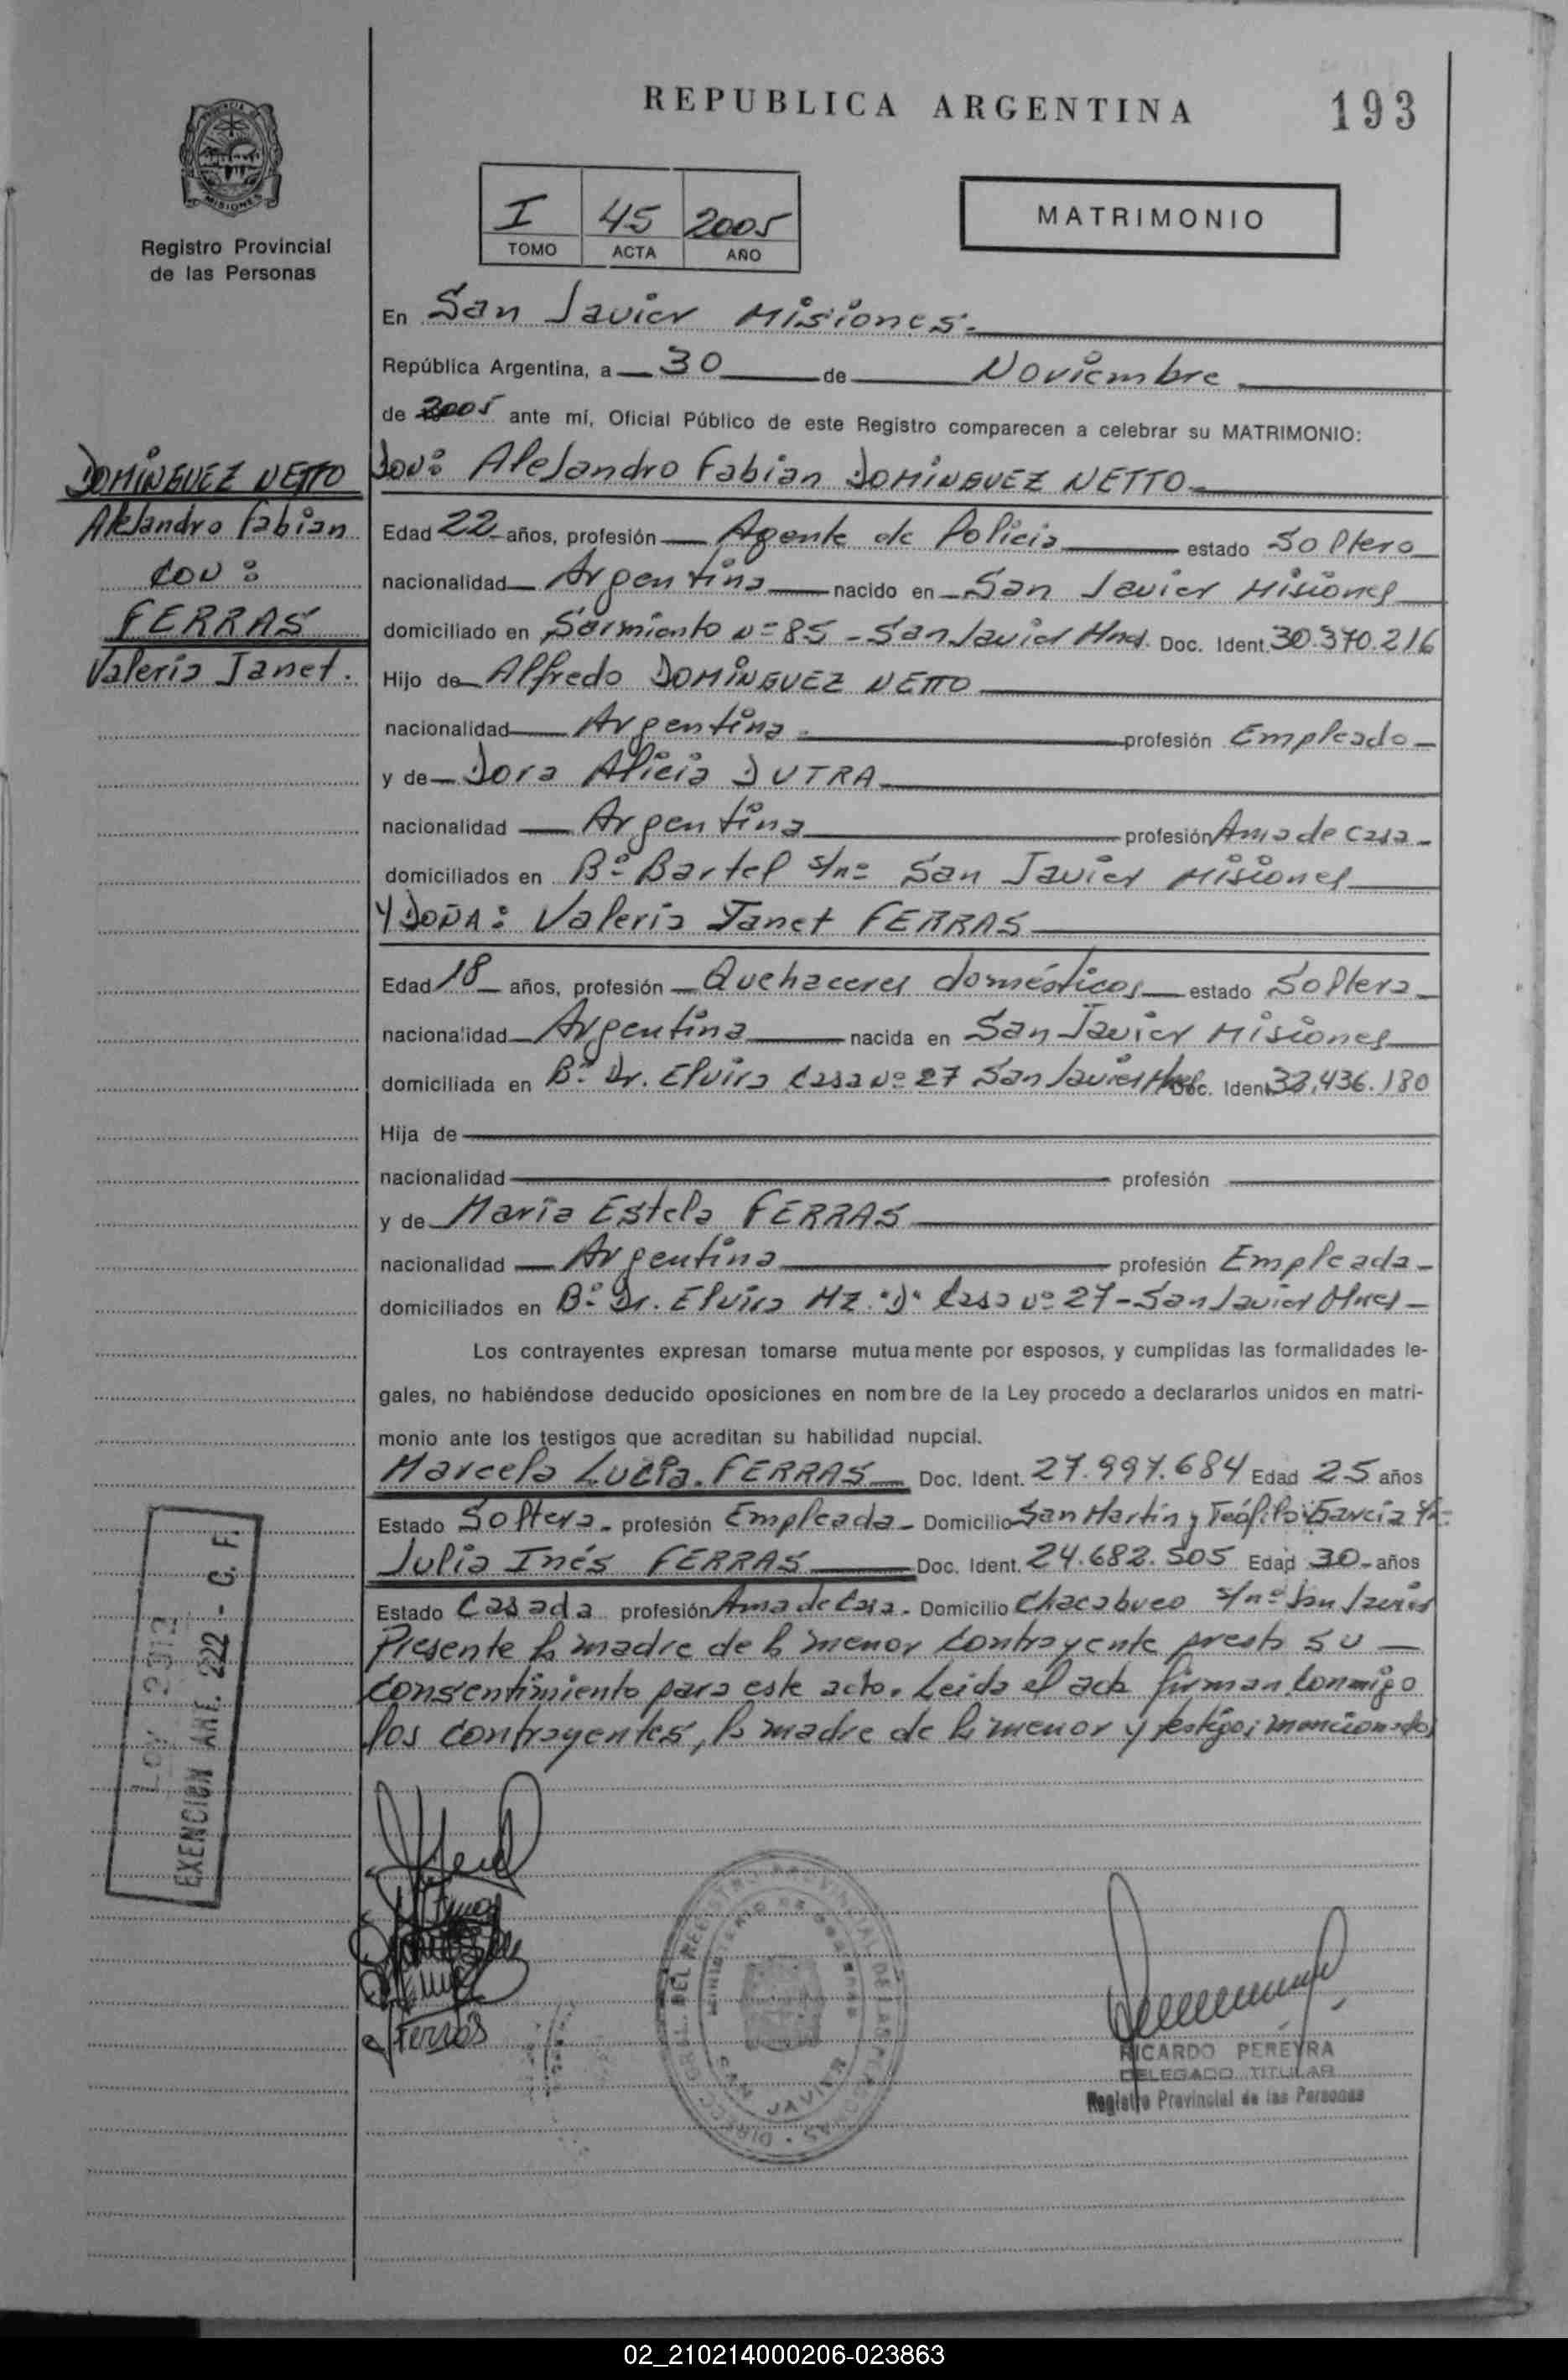 REPUBLICA ARGENTINA
193
MISIONES
Registro Provincial
de las Personas
I 45 2005
TOMO ACTA AÑO
MATRIMONIO
En San Javier Misiones.
República Argentina, a 30 de Noviembre
de 2005 ante mí, Oficial Público de este Registro comparecen a celebrar su MATRIMONIO:
DOMÍNGUEZ NETTO
Alejandro Fabian
CON :
FERRAS
Valeria Janet.
DON: Alejandro Fabian DOMÍNGUEZ NETTO
Edad 22 años, profesión Agente de Policia estado Soltero
nacionalidad Argentina nacido en San Javier Misiones
domiciliado en Sarmiento nº 85 - San Javier Mnes. Doc. Ident. 30.370.216
Hijo de Alfredo DOMÍNGUEZ NETTO
nacionalidad Argentina. profesión Empleado
y de Dora Alicia DUTRA
nacionalidad Argentina profesión Ama de casa
domiciliados en Bº Bartel s/nº San Javier Misiones
Y DOÑA: Valeria Janet FERRAS
Edad 18 años, profesión Quehaceres domésticos estado Soltera
nacionalidad Argentina nacida en San Javier Misiones
domiciliada en Bº Dr. Elvira Casa Nº 27 San Javier Mnes. Doc. Ident. 436.180
Hija de
nacionalidad profesión
y de María Estela FERRAS
nacionalidad Argentina profesión Empleada
domiciliados en Bº Dr. Elvira Mz. "D" Casa Nº 27 - San Javier Mnes
Los contrayentes expresan tomarse mutuamente por esposos, y cumplidas las formalidades le-
gales, no habiéndose deducido oposiciones en nombre de la Ley procedo a declararlos unidos en matri-
monio ante los testigos que acreditan su habilidad nupcial.
Marcela Lucía. FERRAS Doc. Ident. 27.997.684 Edad 25 años
Estado Soltera profesión Empleada Domicilio San Martín y Teófilo García s/nº
Julia Inés FERRAS Doc. Ident. 24.682.505 Edad 30 años
Estado Casada profesión Ama de Casa. Domicilio Chacabuco s/nº San Javier
Presente la madre de la menor contrayente presta su
consentimiento para este acto. Leida el acta firman conmigo
los contrayentes, la madre de la menor y testigos mencionados
LEY 2313
EXENCION ART. 222 - C. F.
Ferras
DIRECC. GRAL. DEL REGISTRO PROVINCIAL DE LAS PERSONAS
MINISTERIO DE GOBIERNO
SAN JAVIER
RICARDO PEREYRA
DELEGADO TITULAR
Registro Provincial de las Personas
02_210214000206-023863